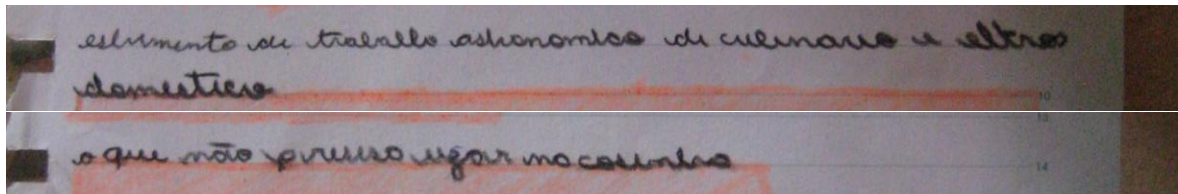 estrumento de traballo astronomico di culinario e eltros
domesticos
o que não preciso ugar na cosinha
10
13
14